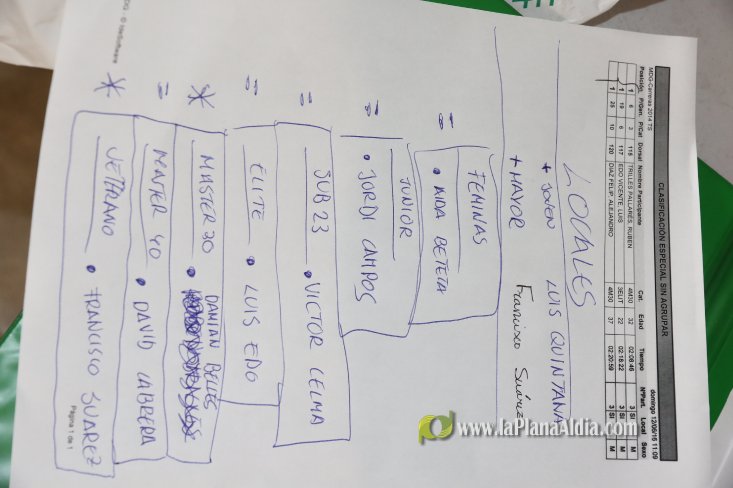 CLASIFICACIÓN ESPECIAL SIN AGRUPAR
MDG-Carreras 2014 TS
domingo 12/06/16 11:09
Posición. P/Gen. P/Cat Dorsal Nombre Participante Cat. Edad Tiempo NºPart. Local Sexo
1 6 3 116 TRILLES PALLARES, RUBEN 4M30 32 02:08:46 3 SI M
1 19 6 117 EDO VICENTE, LUIS 3ELIT 22 02:18:22 3 SI M
1 25 10 120 DIAZ FELIP, ALEJANDRO 4M30 37 02:20:59 3 SI M
LOCALES
+ JOVEN LUIS QUINTANA
+ MAYOR Francisco Suárez
= FEMINAS
• AIDA BETETA
= JUNIOR
• JORDI CAMPOS
= SUB 23 • VICTOR CELMA
= ELITE • LUIS EDO
* MASTER 30 • DAMIAN BELLES
= MASTER 40 • DAVID CABRERA
* VETERANO • FRANCISCO SUAREZ
Página 1 de 1
www.laPlanaAldia.com